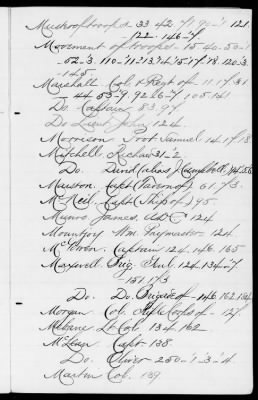 Muster of troops 33. 42. 71. 99-1. 121.
122. 146-7.
Movement of troops - 15. 40. 50-1
52-3. 110-11-2-13. 14. 15. 17. 18. 120-3.
145
Marshall Col. & Regt of 11. 17. 31
44. 53-9. 92. 105. 141
Do. Captain 83. 97
Do Lieut John, 124.
Morrison Samuel 14. 17. 18.
Mitchell 31-2
Do. David (alias) J. Campbell,
Capt 61. 73.
McNeil Capt (Ship of) 95.
Munro James. ADC 124
Mountjoy Wm. Paymaster 124
McOwen. Captain 124. 146. 165
Maxwell Brig. Genl. 124. 134-7.
151. 173
Do. Do. Brigade of - 146. 162. 164
Morgan Col. Rifle Corps of - 127.
Mebane Lt Col. 134. 162
McLean Capt. 138.
Do. Oliver - 250-1-3-4
Martin Col. 139